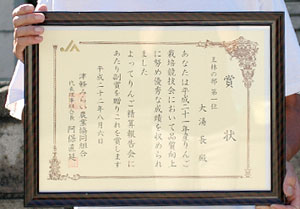 賞状
王林の部 第一位
大湯長殿
あなたは平成二十一年産りんご
栽培競技会において品質向上
に努め優秀な成績を収められ
ました
よってりんご精算報告会に
あたり副賞を贈りこれを賞します
平成二十二年八月六日
津軽みらい農業協同組合
代表理事組合長 阿保直延
JA